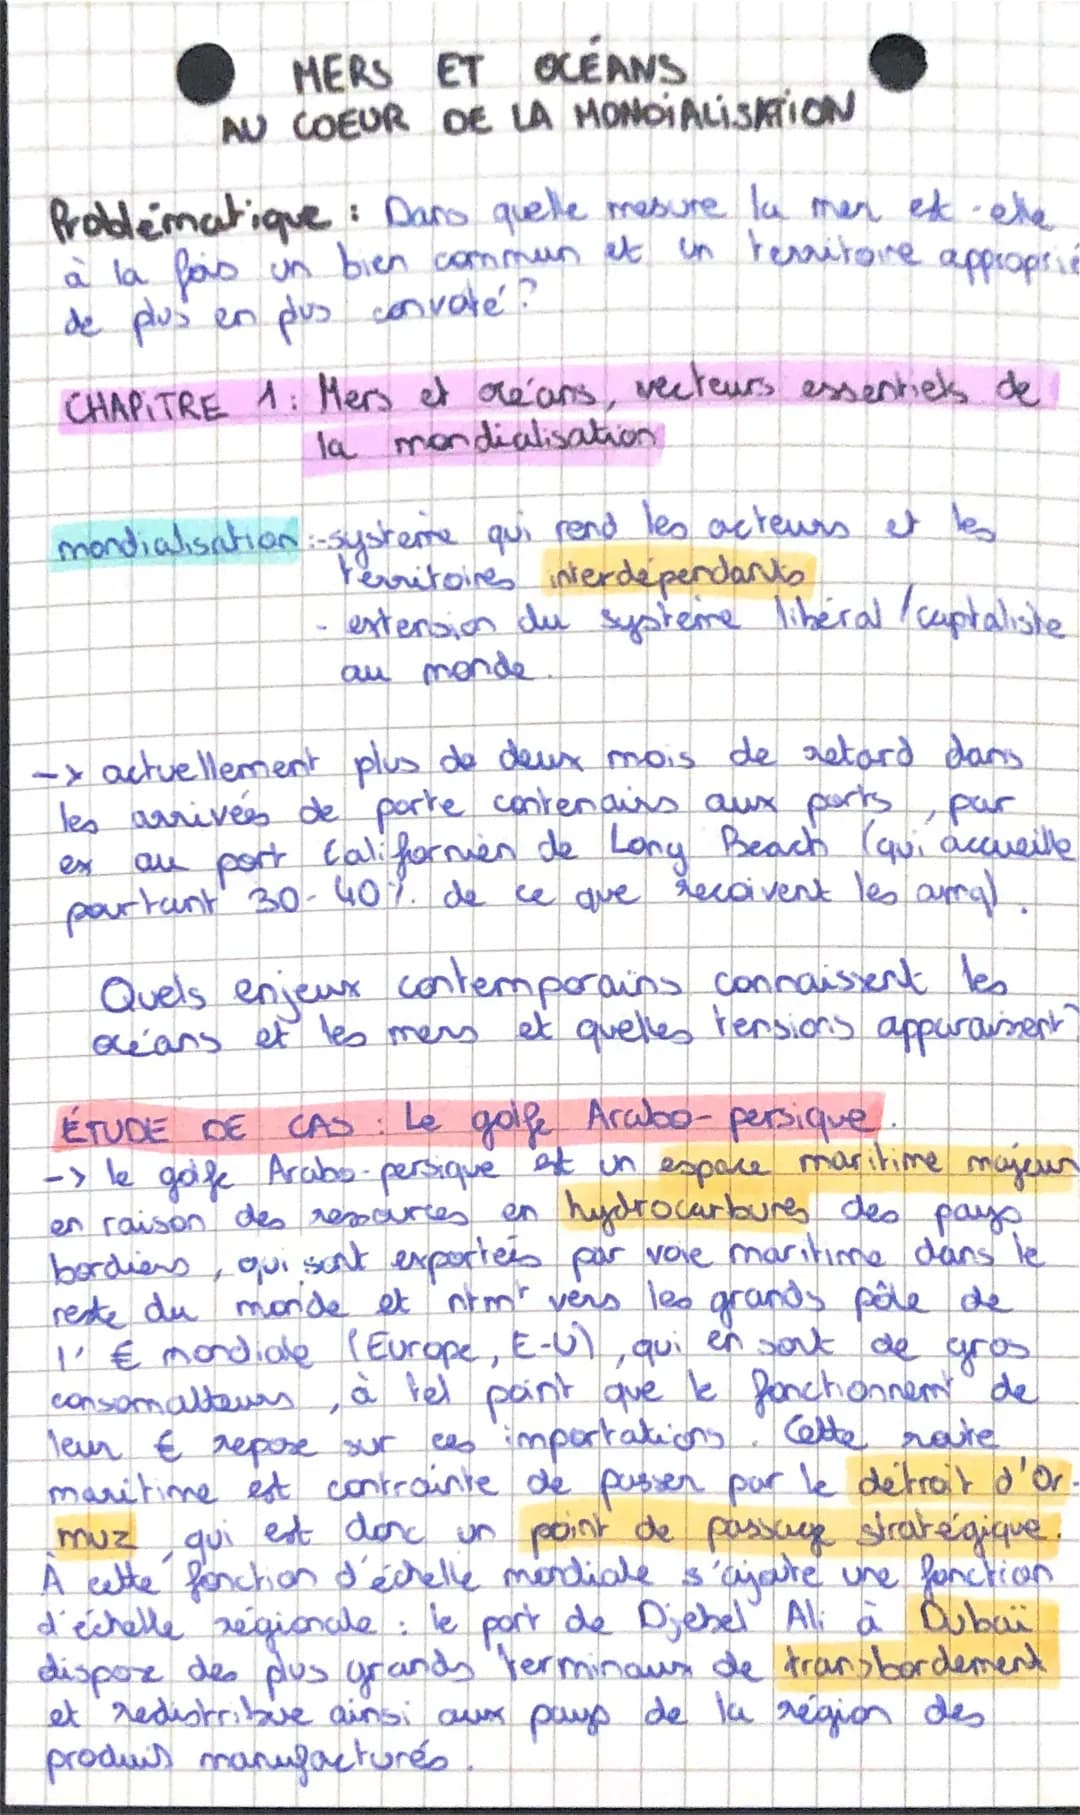 MERS ET OCÉANS
AU COEUR DE LA MONDIALISATION
Problématique : Dans quelle mesure la mer est-elle
à la fois un bien commun et un territoire approprié
de plus en plus convoité ?
CHAPITRE 1 : Mers et océans, vecteurs essentiels de
la mondialisation
mondialisation : - système qui rend les acteurs et les
territoires interdépendants
- extension du système libéral / captaliste
au monde.
-> actuellement plus de deux mois de retard dans
les arrivées de porte contenairs aux ports, par
ex au port Californien de Long Beach (qui accueille
pourtant 30-40% de ce que recoivent les amq).
Quels enjeux contemporains connaissent les
océans et les mers et quelles tensions apparaissent ?
ÉTUDE DE CAS : Le golfe Arabo-persique.
-> le golfe Arabo-persique est un espace maritime majeur
en raison des ressources en hydrocarbures des pays
bordiers, qui sont exportés par voie maritime dans le
reste du monde et ntmt vers les grands pôle de
l' € mondiale (Europe, E-U), qui en sont de gros
consomatteurs, à tel point que le fonctionnemt de
leur € repose sur ces importations. Cette route
maritime est contrainte de passer par le détroit d'Or-
muz, qui est donc un point de passage stratégique.
À cette fonction d'échelle mondiale s'ajoute une fonction
d'échelle régionale : le port de Djebel Ali à Dubaï
dispose des plus grands terminaux de transbordement
et redistribue ainsi aux pays de la région des
produis manufacturés.